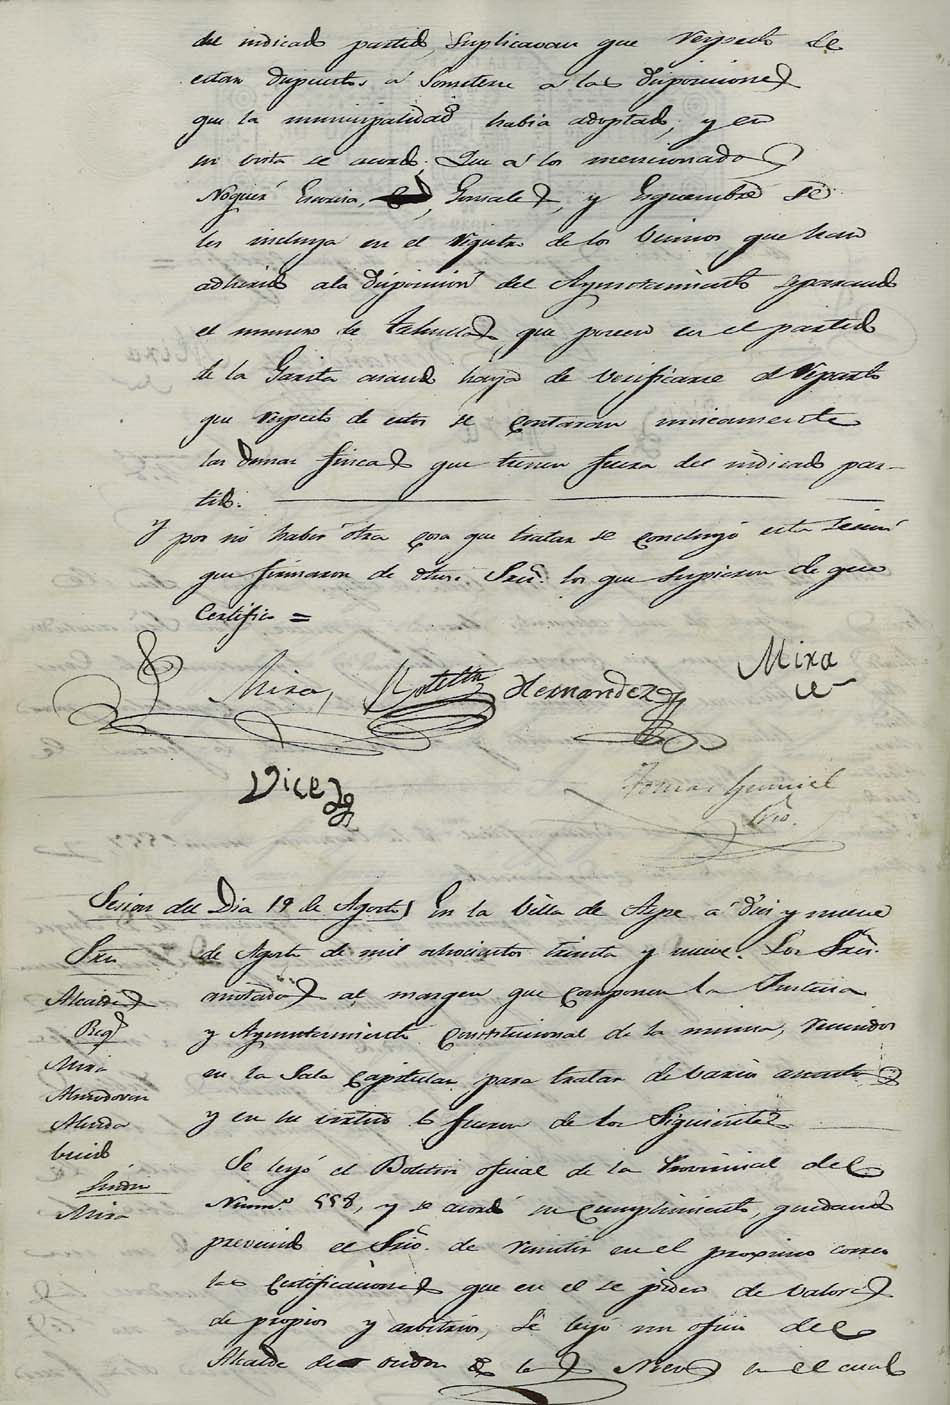 del indicado partido, suplicavan que respecto se
estan dispuestos á someterse á las disposiciones
que la municipalidad habia adoptado, y en
su vista se acordó. Que á los mencionados
Noguer Escrina, Gonsalez, y se
les incluya en el registro de los vecinos que han
adherido ala disposicion del Ayuntamiento separando
el numero de tahullas, que poseen en el partido
de la Garita cuando haya de verificarse el reparto
que respecto de estos se contaran unicamente
las demas fincas que tienen fuera del indicado par-
tido.
Y por no haber otra cosa que tratar se concluyó esta sesion
que firmaron de dhos. Sres. los que supieron de que
Certifico =
Mira
Mira, Botella Hernandez
Vicedo
Tomas Gumiel
Srio.
Sesion del Dia 19 de Agosto En la Villa de Aspe á diez y nueve
de Agosto de mil ochocientos treinta y nueve. Los Sres.
anotados al margen que componen la Justicia
y Ayuntamiento Constitucional de la misma, reunidos
en la Sala Capitular para tratar de varios asuntos
y en su virtud lo fueron de los Siguientes
Sres
Alcaldes
Regs
Mira
Almodovar
Cerdo
Sindo
Mira
Se leyó el Boletin oficial de la Provincial del
Numo. 558, y se acordó su cumplimiento, quedando
prevenido el Srio. de remitir en el proximo correo
las certificaciones que en el se piden de valores
de propios y arbitrios, Se leyó un oficio del
Alcalde de en el cual